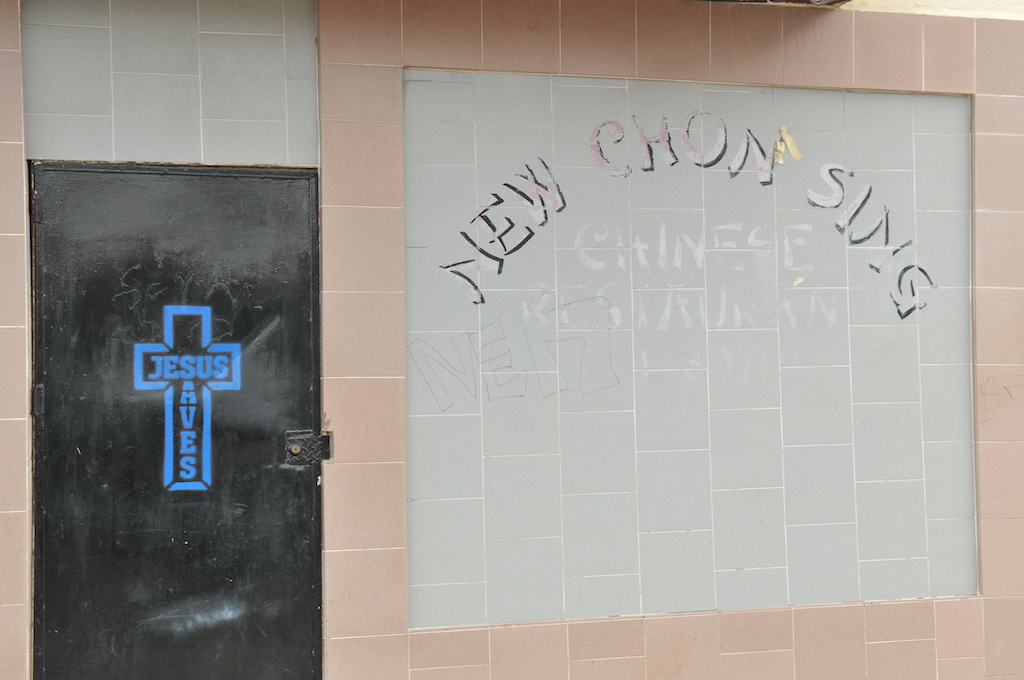 JESUS
SAVES
NEW CHON SING
CHINESE
RESTAURANT